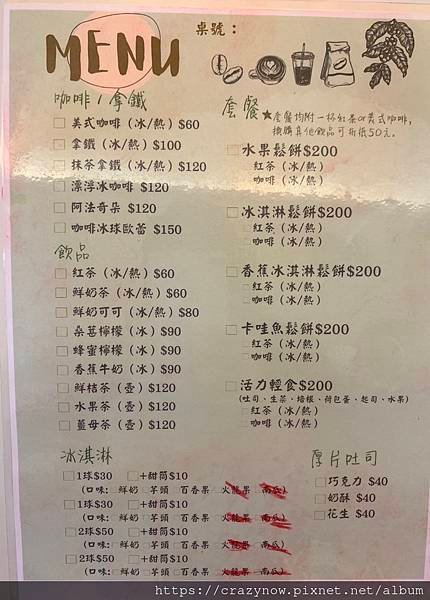 桌號：
MENU
咖啡/拿鐵
美式咖啡（冰/熱）$60
拿鐵（冰/熱）$100
抹茶拿鐵（冰/熱）$120
漂浮冰咖啡 $120
阿法奇朵 $120
咖啡冰球歐蕾 $150
飲品
紅茶（冰/熱）$60
鮮奶茶（冰/熱）$60
鮮奶可可（冰/熱）$80
桑葚檸檬（冰）$90
蜂蜜檸檬（冰）$90
香蕉牛奶（冰）$90
鮮桔茶（壺）$120
水果茶（壺）$120
薑母茶（壺）$120
冰淇淋
1球$30 +甜筒$10
(口味: 鮮奶 芋頭 百香果 火龍果 南瓜)
1球$30 +甜筒$10
(口味: 鮮奶 芋頭 百香果 火龍果 南瓜)
2球$50 +甜筒$10
(口味: 鮮奶 芋頭 百香果 火龍果 南瓜)
2球$50 +甜筒$10
(口味: 鮮奶 芋頭 百香果 火龍果 南瓜)
套餐
★套餐均附一杯紅茶or美式咖啡,
換購其他飲品可折抵50元。
水果鬆餅$200
紅茶（冰/熱）
咖啡（冰/熱）
冰淇淋鬆餅$200
紅茶（冰/熱）
咖啡（冰/熱）
香蕉冰淇淋鬆餅$200
紅茶（冰/熱）
咖啡（冰/熱）
卡哇魚鬆餅$200
紅茶（冰/熱）
咖啡（冰/熱）
活力輕食$200
(吐司、生菜、培根、荷包蛋、起司、水果)
紅茶（冰/熱）
咖啡（冰/熱）
厚片吐司
巧克力 $40
奶酥 $40
花生 $40
https://crazynow.pixnet.net/album